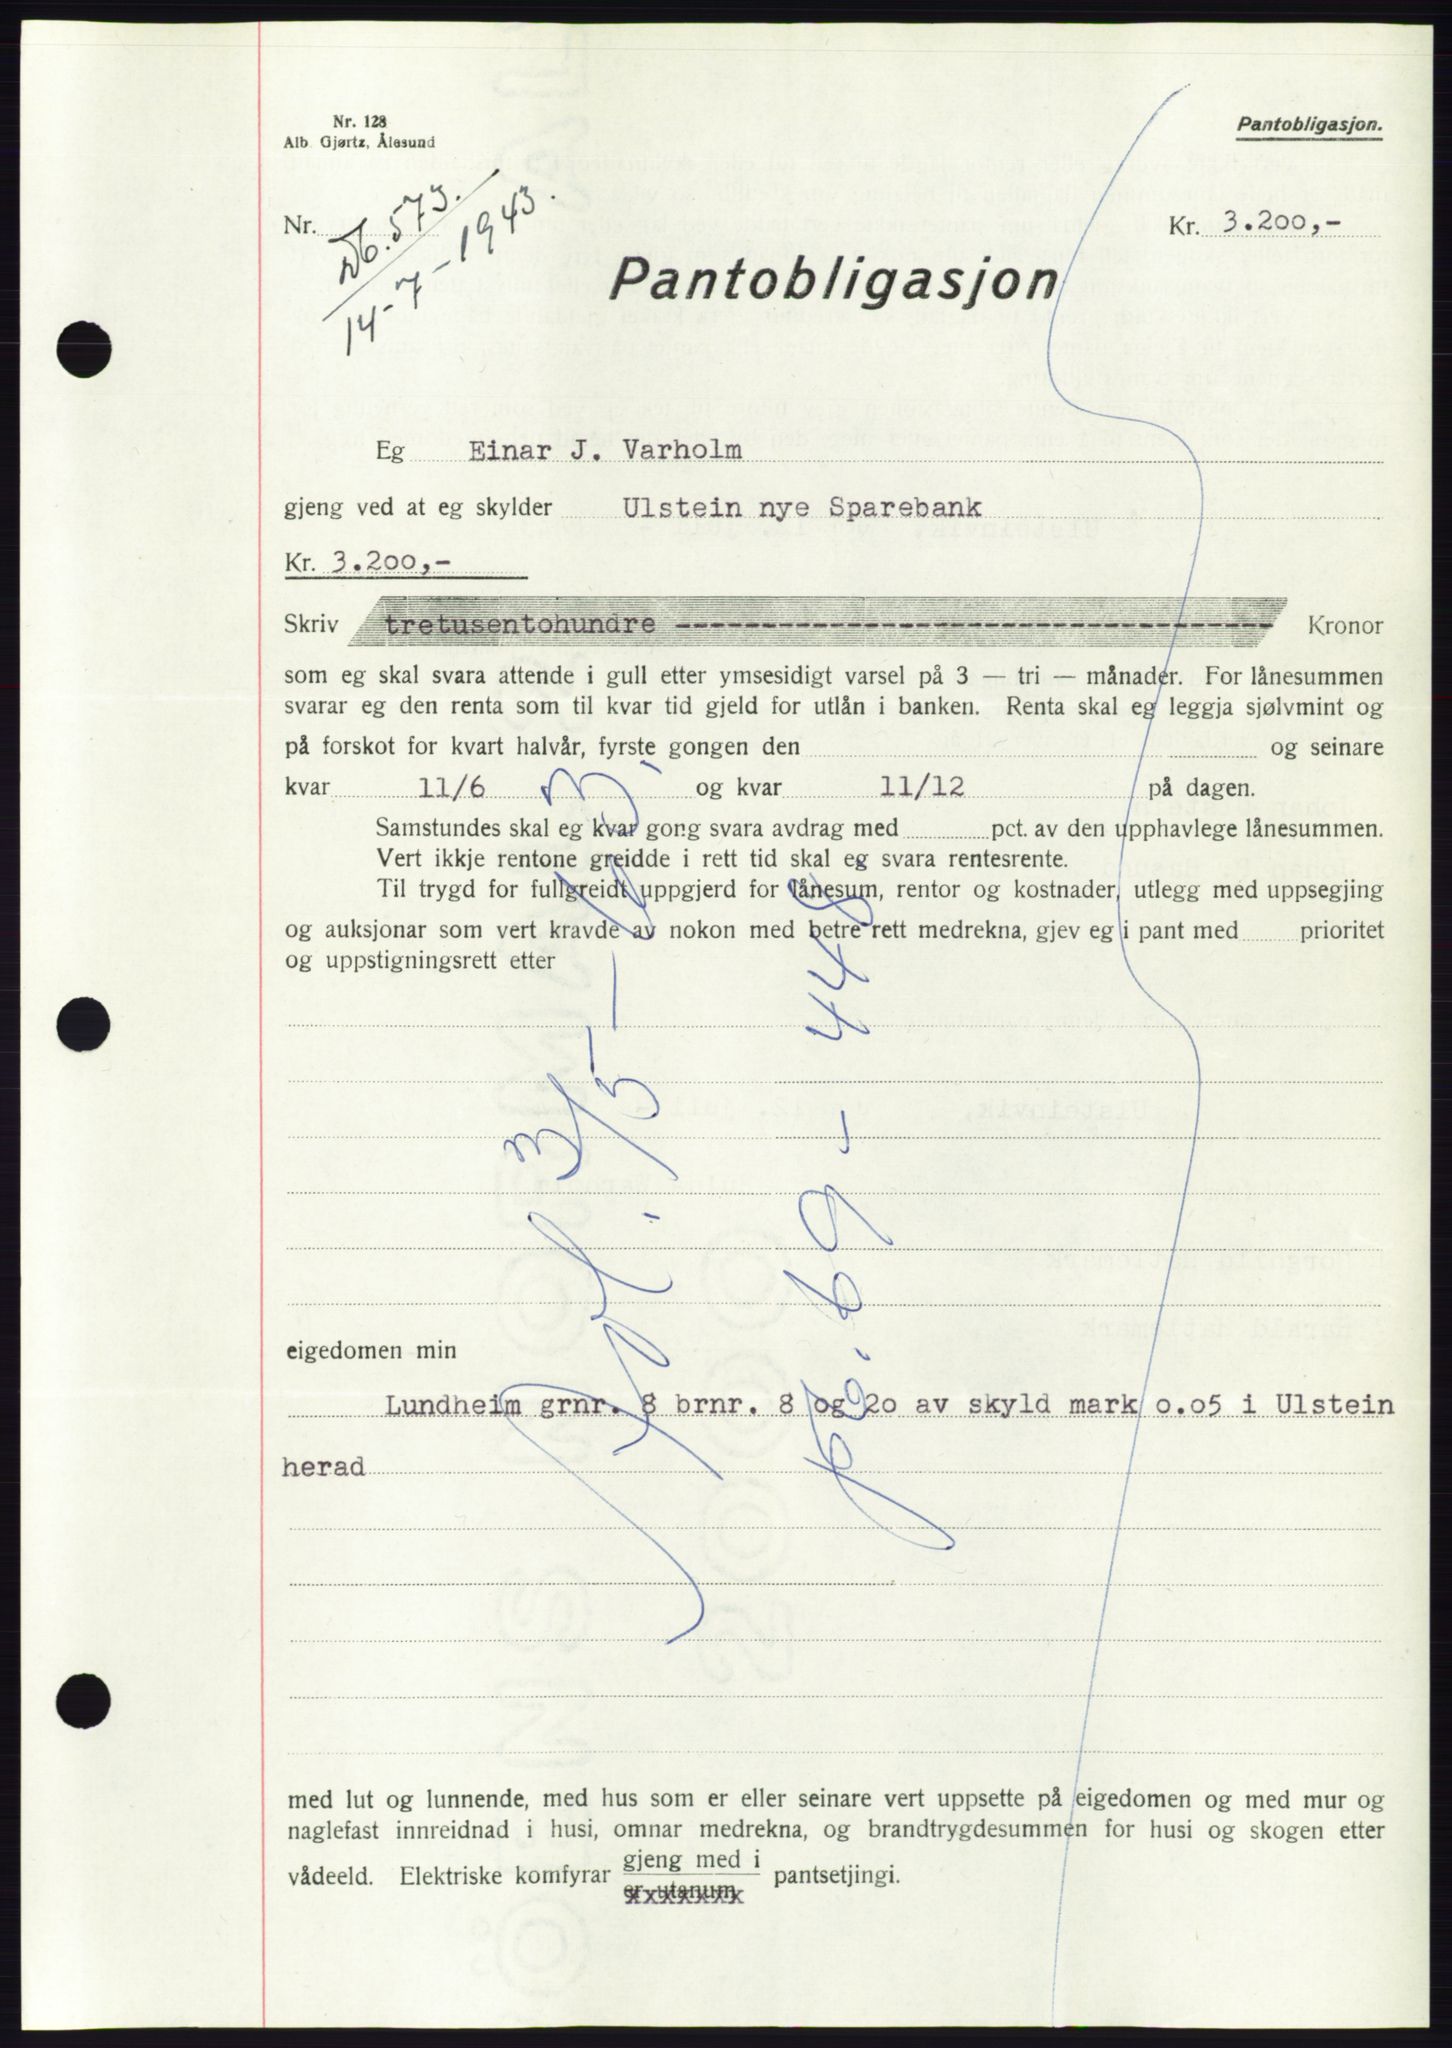 Nr. 128
Alb. Gjørtz, Ålesund
Pantobligasjon.
Nr. 573.
14-7-1943.
Kr. 3.200,-
Pantobligasjon
Eg Einar J. Varholm
gjeng ved at eg skylder Ulstein nye Sparebank
Kr. 3.200,-
Skriv tretusentohundre ------------------------------------- Kronor
som eg skal svara attende i gull etter ymsesidigt varsel på 3 — tri — månader. For lånesummen
svarar eg den renta som til kvar tid gjeld for utlån i banken. Renta skal eg leggja sjølvmint og
på forskot for kvart halvår, fyrste gongen den og seinare
kvar 11/6 og kvar 11/12 på dagen.
Samstundes skal eg kvar gong svara avdrag med pct. av den upphavlege lånesummen.
Vert ikkje rentone greidde i rett tid skal eg svara rentesrente.
Til trygd for fullgreidt uppgjerd for lånesum, rentor og kostnader, utlegg med uppsegjing
og auksjonar som vert kravde av nokon med betre rett medrekna, gjev eg i pant med prioritet
og uppstigningsrett etter
eigedomen min
Lundheim grnr. 8 brnr. 8 og 20 av skyld mark 0.05 i Ulstein
herad
med lut og lunnende, med hus som er eller seinare vert uppsette på eigedomen og med mur og
naglefast innreidnad i husi, omnar medrekna, og brandtrygdesummen for husi og skogen etter
vådeeld. Elektriske komfyrar gjeng med i pantsetjingi.
er utanum
69 - 448